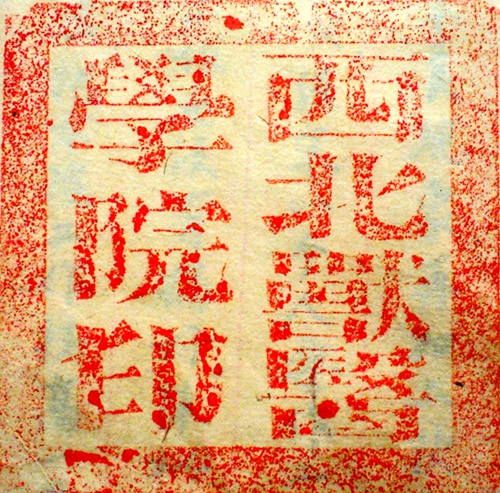 西北獸醫
學院印